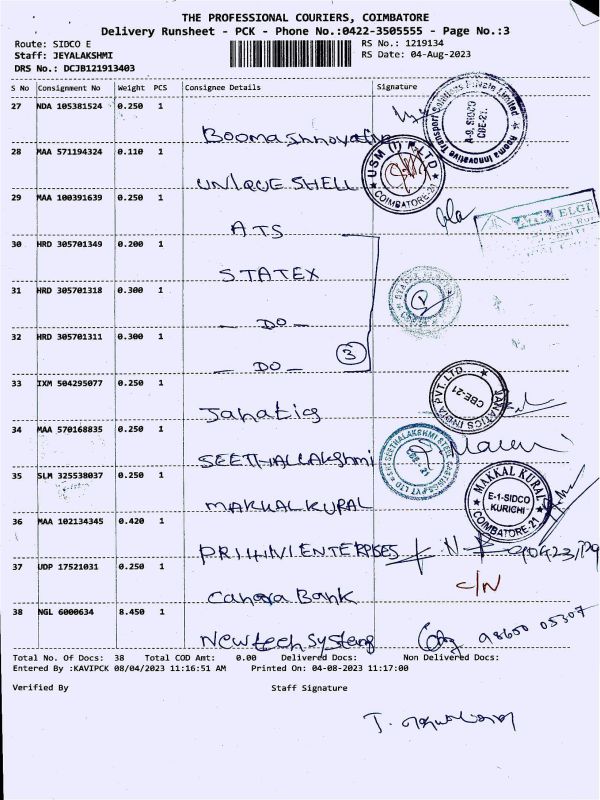 THE PROFESSIONAL COURIERS, COIMBATORE
Delivery Runsheet - PCK - Phone No.:0422-3505555 - Page No.:3
Route: SIDCO E RS No.: 1219134
Staff: JEYALAKSHMI RS Date: 04-Aug-2023
DRS No.: DCJB121913403
S No Consignment No Weight PCS Consignee Details Signature
27 NDA 105381524 0.250 1
Rooma Innovative Transport Solutions Private Limited
A-9, SIDCO
CBE-21.
Booma Innovative
28 MAA 571194324 0.110 1
USM (I) P LTD
COIMBATORE-21
UNIQUE SHELL
29 MAA 100391639 0.250 1
ELGI
ATS
30 HRD 305701349 0.200 1
STATEX
31 HRD 305701318 0.300 1
— DO —
32 HRD 305701311 0.300 1
— DO —
3
33 IXM 504295077 0.250 1
JANATICS INDIA PVT. LTD.
CBE-21
Janatics
34 MAA 570168835 0.250 1
SEETHALAKSHMI STEEL CASTINGS PVT LTD
SEETHALLAKSHMI
35 SLM 325538037 0.250 1
MAKKAL KURAL
E-1-SIDCO
KURICHI
COIMBATORE-21
MAKKAL KURAL
36 MAA 102134345 0.420 1
PRITHVI ENTERPISES
37 UDP 17521031 0.250 1
C/N
Canara Bank
38 NGL 6000634 8.450 1
Newtech Systems 98650 05307
Total No. Of Docs: 38 Total COD Amt: 0.00 Delivered Docs: Non Delivered Docs:
Entered By :KAVIPCK 08/04/2023 11:16:51 AM Printed On: 04-08-2023 11:17:00
Verified By Staff Signature